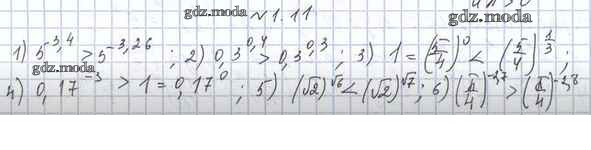 gdz.moda №1.11 gdz.moda
1) 5^{-3,4} > 5^{-3,26} ; 2) 0,3^{0,4} > 0,3^{0,3} ; 3) 1 = (5/4)^0 < (5/4)^{1/3} ;
gdz.moda
4) 0,17^{-3} > 1 = 0,17^0 ; 5) (√2)^{√6} < (√2)^{√7} ; 6) (π/4)^{-2,7} > (π/4)^{-2,8}